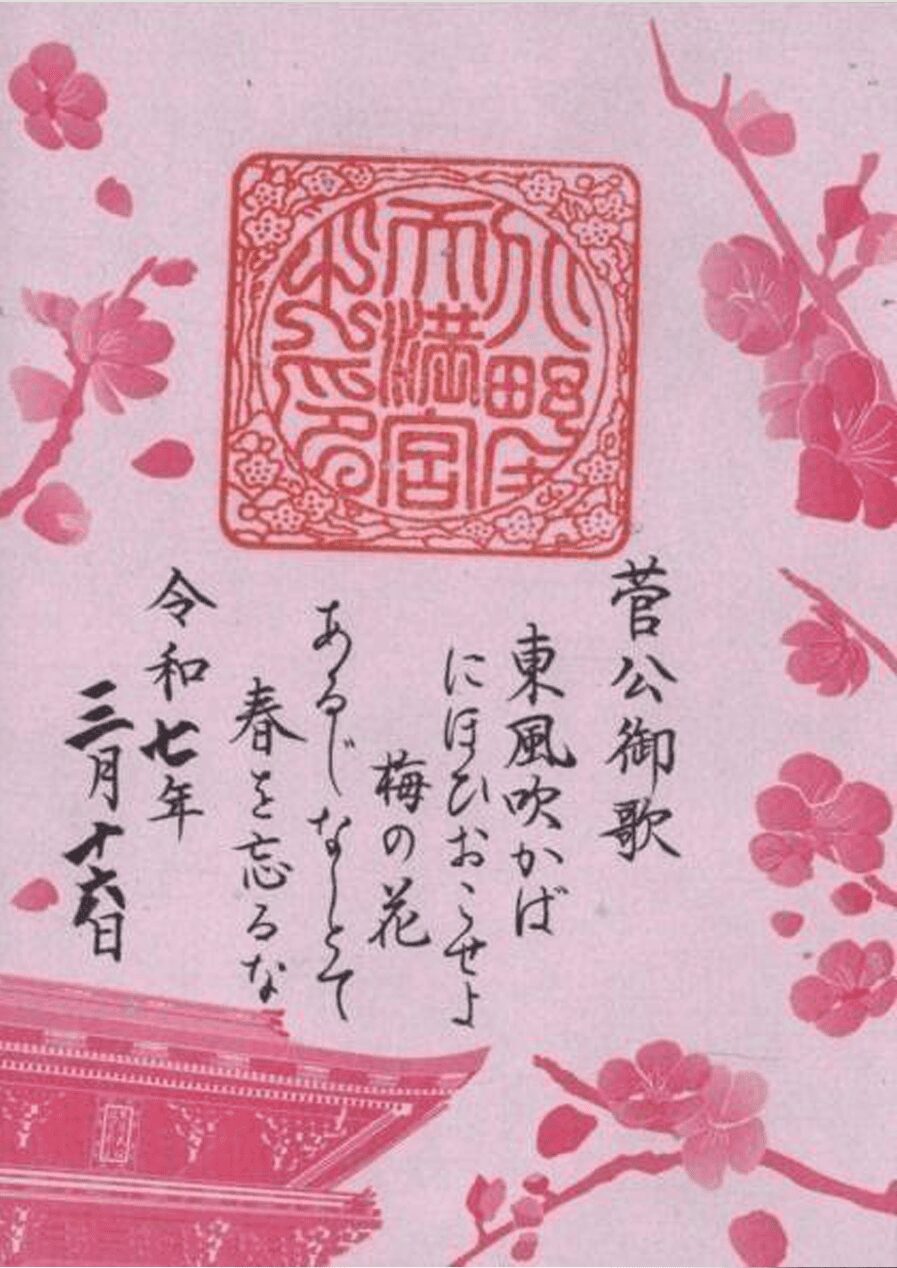 北野
天満宮
之印
菅公御歌
東風吹かば
にほひおこせよ
梅の花
あるじなしとて
春を忘るな
令和七年
三月十六日